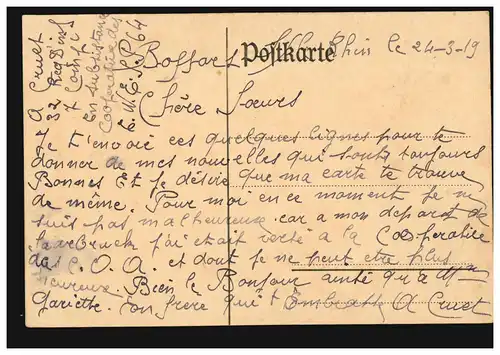 Postkarte
Boppart s/le Rhin le 24-3-19
Chère Sœurs
Je t'envoie ces quelques lignes pour te
donner de mes nouvelles qui sont toujours
Bonnes Et je désire que ma carte te trouve
de même. Pour moi en ce moment je ne
suis pas malheureuse car a mon depart de
Saarbruck j'ai était versé a la Coopérative
des C.O.A et dont je ne peut etre plus
heureuse. Bien le Bonjour ainsi qu'a
Mariette. Ton frère qui t'Embrasse A Cruet
A Cruet
32 Reg d'inf
7 Comp
En subsistance
Cooperative des
E.M.E. S.P 64